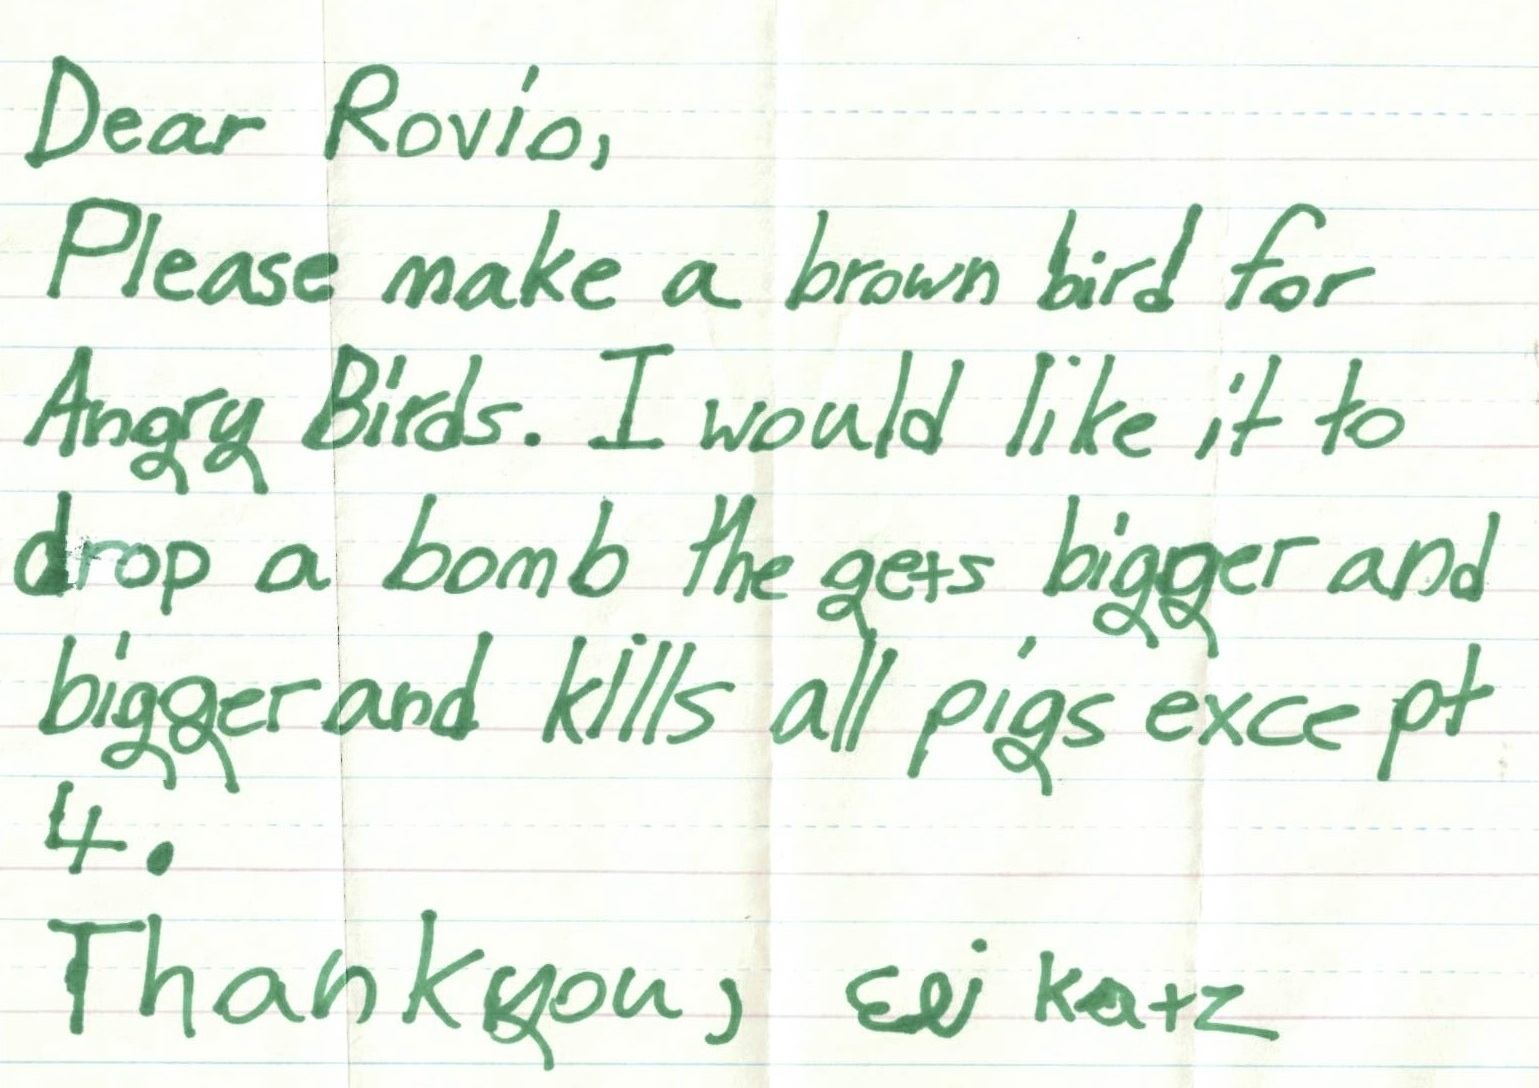 Dear Rovio,
Please make a brown bird for
Angry Birds. I would like it to
drop a bomb the gets bigger and
bigger and kills all pigs except
4.
Thankyou, Eli Katz